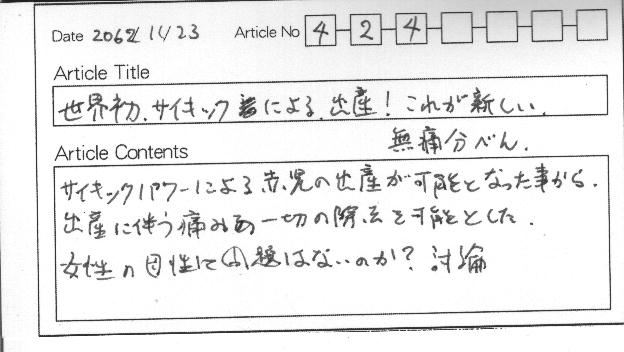 Date 2062/11/23 Article No 4 2 4
Article Title
世界初、サイキック者による、出産！これが新しい、
無痛分べん.
Article Contents
サイキックパワーによる赤児の出産が可能となった事から、
出産に伴う痛みの一切の除去を可能とした.
女性の母性に問題はないのか？討論